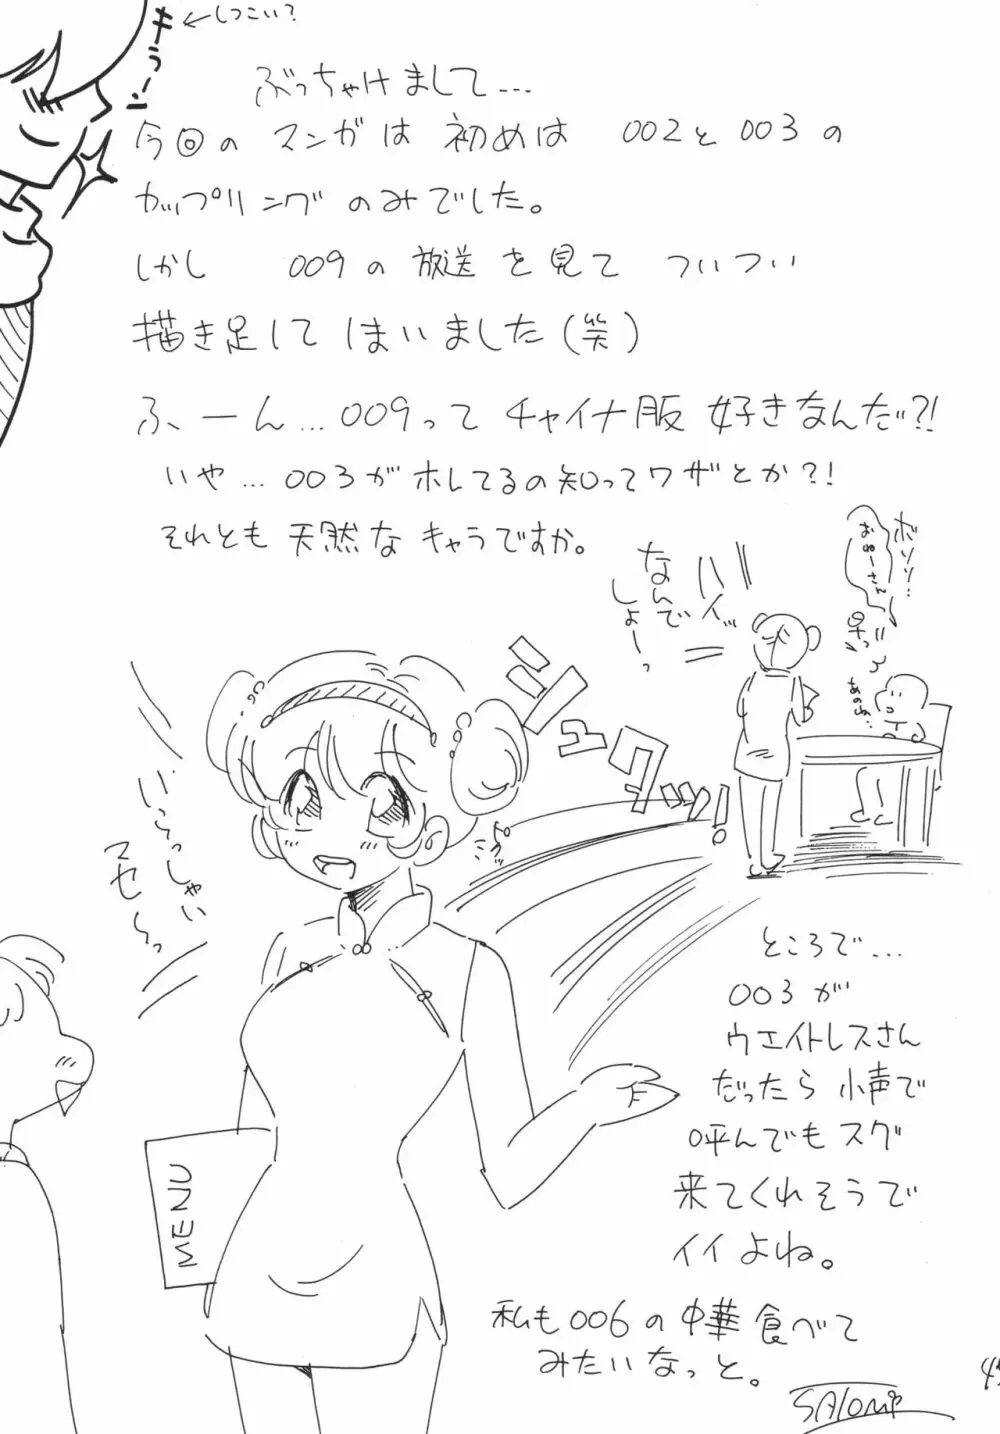 キラーン
←しつこい?
ぶっちゃけまして…
今回の マンガは 初めは 002と003の
カップリングのみでした。
しかし 009の放送を見て ついつい
描き足して しまいました(笑)
ふーん…009って チャイナ服 好きなんだ?!
いや…003がホレてるの知ってワザとか?!
それとも 天然な キャラですか。
ボソッ!
おねーさん
早っ!!
あのね…
ハイッ
なんで
しょーっ
シュタッッ!
いらっしゃい
マセ〜っ
MENU
ところで…
003が
ウエイトレスさん
だったら 小声で
呼んでもスグ
来てくれそうで
イイよね。
私も006の中華食べて
みたいなっと。
SALOME